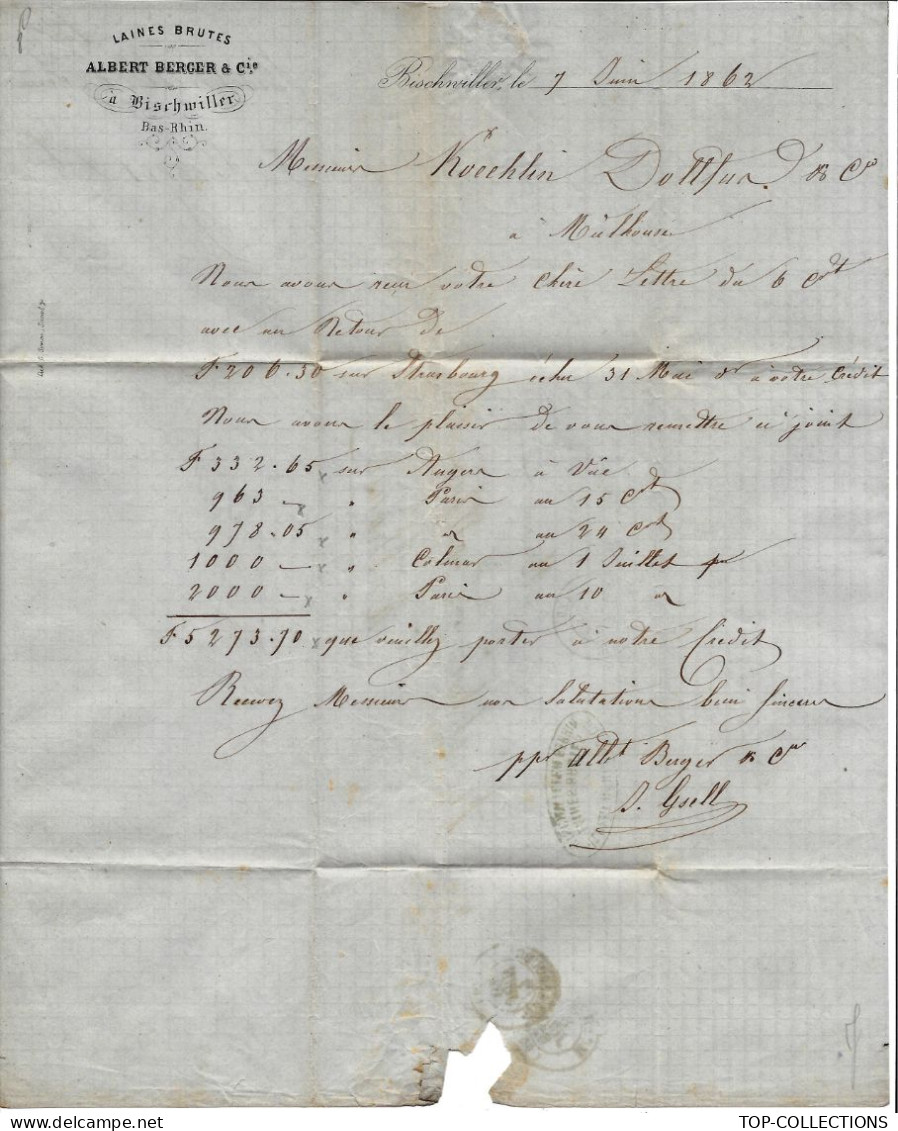 LAINES BRUTES
ALBERT BERGER & Cie
à Bischwiller
Bas-Rhin.
Bischwiller, le 7 Juin 1862
Messieurs Koechlin Dollfus & Cie
à Mulhouse
Nous avons reçu votre chère Lettre du 6 Crt
avec un Retour de
F 206.30 sur Strasbourg échu 31 Mai à votre Crédit
Nous avons le plaisir de vous remettre ci joint
F 332.65 sur Angers à Vue
963 — " Paris au 15 Crt
978.05 " d au 24 Crt
1000 — " Colmar au 1 Juillet pr
2000 — " Paris au 10 d
F 5273.70 que veuillez porter à notre Crédit
Recevez Messieurs nos Salutations bien sincères
ppr Albt Berger & Cie
S. Gsell
TOP-COLLECTIONS